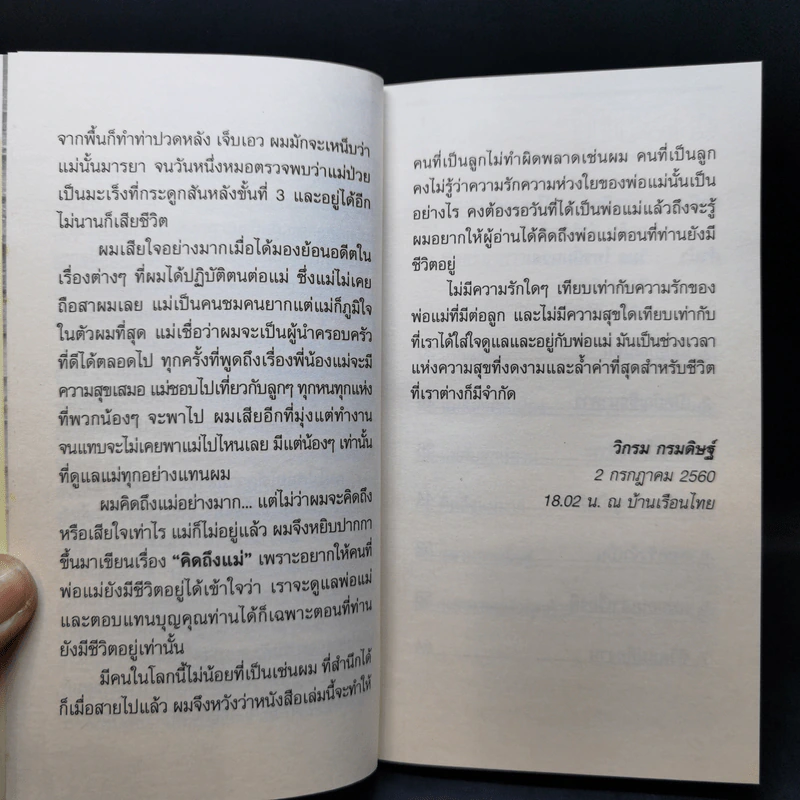 จากพื้นก็ทำท่าปวดหลัง เจ็บเอว ผมมักจะเหน็บว่า
แม่นั้นมารยา จนวันหนึ่งหมอตรวจพบว่าแม่ป่วย
เป็นมะเร็งที่กระดูกสันหลังขั้นที่ 3 และอยู่ได้อีก
ไม่นานก็เสียชีวิต
ผมเสียใจอย่างมากเมื่อได้มองย้อนอดีตใน
เรื่องต่างๆ ที่ผมได้ปฏิบัติตนต่อแม่ ซึ่งแม่ไม่เคย
ถือสาผมเลย แม่เป็นคนชมคนยากแต่แม่ก็ภูมิใจ
ในตัวผมที่สุด แม่เชื่อว่าผมจะเป็นผู้นำครอบครัว
ที่ดีได้ตลอดไป ทุกครั้งที่พูดถึงเรื่องพี่น้องแม่จะมี
ความสุขเสมอ แม่ชอบไปเที่ยวกับลูกๆ ทุกหนทุกแห่ง
ที่พวกน้องๆ จะพาไป ผมเสียอีกที่มุ่งแต่ทำงาน
จนแทบจะไม่เคยพาแม่ไปไหนเลย มีแต่น้องๆ เท่านั้น
ที่ดูแลแม่ทุกอย่างแทนผม
ผมคิดถึงแม่อย่างมาก... แต่ไม่ว่าผมจะคิดถึง
หรือเสียใจเท่าไร แม่ก็ไม่อยู่แล้ว ผมจึงหยิบปากกา
ขึ้นมาเขียนเรื่อง “คิดถึงแม่” เพราะอยากให้คนที่
พ่อแม่ยังมีชีวิตอยู่ได้เข้าใจว่า เราจะดูแลพ่อแม่
และตอบแทนบุญคุณท่านได้ก็เฉพาะตอนที่ท่าน
ยังมีชีวิตอยู่เท่านั้น
มีคนในโลกนี้ไม่น้อยที่เป็นเช่นผม ที่สำนึกได้
ก็เมื่อสายไปแล้ว ผมจึงหวังว่าหนังสือเล่มนี้จะทำให้
คนที่เป็นลูกไม่ทำผิดพลาดเช่นผม คนที่เป็นลูก
คงไม่รู้ว่าความรักความห่วงใยของพ่อแม่นั้นเป็น
อย่างไร คงต้องรอวันที่ได้เป็นพ่อแม่แล้วถึงจะรู้
ผมอยากให้ผู้อ่านได้คิดถึงพ่อแม่ตอนที่ท่านยังมี
ชีวิตอยู่
ไม่มีความรักใดๆ เทียบเท่ากับความรักของ
พ่อแม่ที่มีต่อลูก และไม่มีความสุขใดเทียบเท่ากับ
ที่เราได้ใส่ใจดูแลและอยู่กับพ่อแม่ มันเป็นช่วงเวลา
แห่งความสุขที่งดงามและล้ำค่าที่สุดสำหรับชีวิต
ที่เราต่างก็มีจำกัด
วิกรม กรมดิษฐ์
2 กรกฎาคม 2560
18.02 น. ณ บ้านเรือนไทย